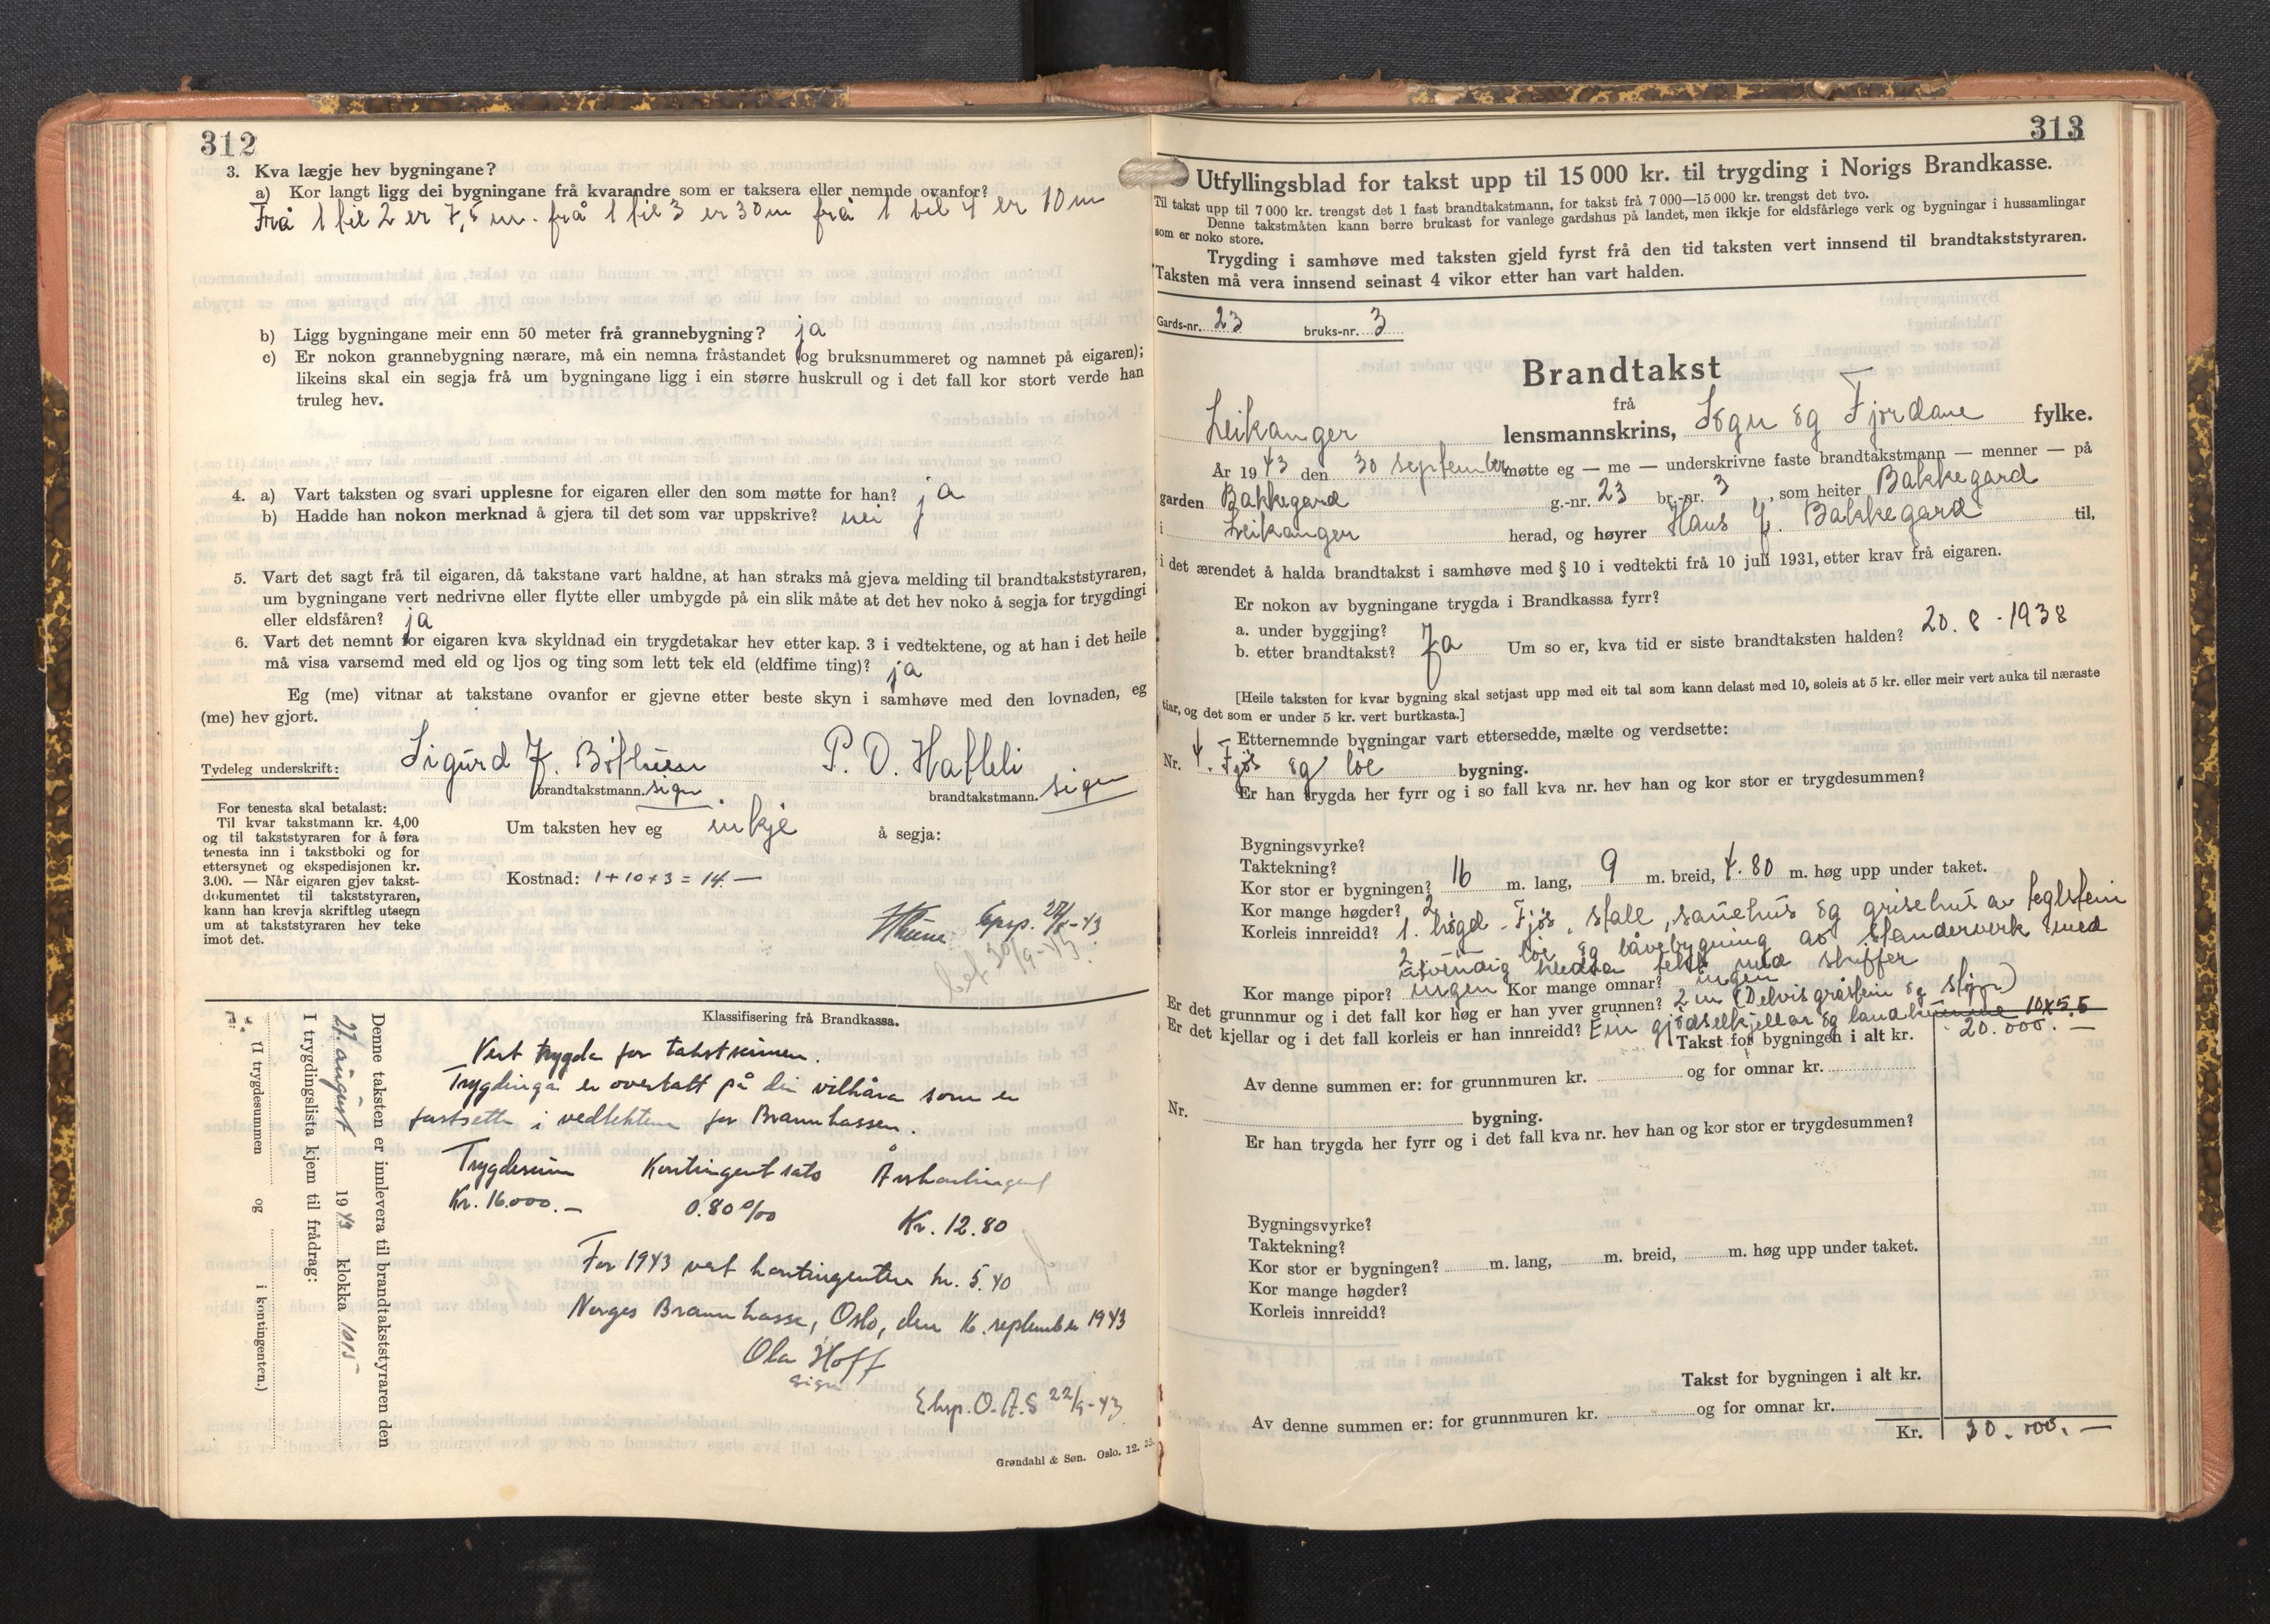 312
3. Kva lægje hev bygningane?
a) Kor langt ligg dei bygningane frå kvarandre som er taksera eller nemnde ovanfor?
Frå 1 til 2 er 7,5 m. frå 1 til 3 er 30 m frå 1 til 4 er 10 m
b) Ligg bygningane meir enn 50 meter frå grannebygning? ja
c) Er nokon grannebygning nærare, må ein nemna fråstandet (og bruksnummeret og namnet på eigaren);
likeins skal ein segja frå um bygningane ligg i ein større huskrull og i det fall kor stort verde han
truleg hev.
4. a) Vart taksten og svari upplesne for eigaren eller den som møtte for han? ja
b) Hadde han nokon merknad å gjera til det som var uppskrive? nei
5. Vart det sagt frå til eigaren, då takstane vart haldne, at han straks må gjeva melding til brandtakststyraren,
um bygningane vert nedrivne eller flytte eller umbygde på ein slik måte at det hev noko å segja for trygdingi
eller eldsfåren? ja
6. Vart det nemnt for eigaren kva skyldnad ein trygdetakar hev etter kap. 3 i vedtektene, og at han i det heile
må visa varsemd med eld og ljos og ting som lett tek eld (eldfime ting)? ja
Eg (me) vitnar at takstane ovanfor er gjevne etter beste skyn i samhøve med den lovnaden, eg
(me) hev gjort.
Tydeleg underskrift: Sigurd J. Bøthun P. O. Hafleli
brandtakstmann. sign brandtakstmann. sign
For tenesta skal betalast:
Til kvar takstmann kr. 4,00
og til takststyraren for å føra
tenesta inn i takstboki og for
ettersynet og ekspedisjonen kr.
3.00. — Når eigaren gjev takst-
dokumentet til takststyraren,
kann han krevja skriftleg utsegn
um at takststyraren hev teke
imot det.
Um taksten hev eg inkje å segja:
Kostnad: 1 + 10 + 3 = 14. —
Exsp. 27/8-43
bet 30/9-43.
Klassifisering frå Brandkassa.
Vert trygda for takstsumen.
Trygdinga er overtatt på dei vilkåra som er
fastsette i vedtektene for Brannkassen.
Trygdesum Kontingentsats Årskontingent
Kr. 16.000.— 0.80 ‰ Kr. 12.80
For 1943 vert kontingenten kr. 5.40
Norges Brannkasse, Oslo, den 16. september 1943
Ola Hoff
sign
Eksp. O.A.S 22/9-43
Grøndahl & Søn. Oslo. 12. 35.
Denne taksten er innlevera til brandtakststyraren den
27. august 1943 klokka 1015
I trygdingslista kjem til frådrag:
(I trygdesummen og i kontingenten.)
313
Utfyllingsblad for takst upp til 15 000 kr. til trygding i Norigs Brandkasse.
Til takst upp til 7 000 kr. trengst det 1 fast brandtakstmann, for takst frå 7 000—15 000 kr. trengst det tvo.
Denne takstmåten kann berre brukast for vanlege gardshus på landet, men ikkje for eldsfårlege verk og bygningar i hussamlingar
som er noko store.
Trygding i samhøve med taksten gjeld fyrst frå den tid taksten vert innsend til brandtakststyraren.
Taksten må vera innsend seinast 4 vikor etter han vart halden.
Gards-nr. 23 bruks-nr. 3
Brandtakst
frå
Leikanger lensmannskrins, Sogn og Fjordane fylke.
År 1943 den 30 september møtte eg — me — underskrivne faste brandtakstmann — menner — på
garden Bakkegard g.-nr. 23 br.-nr. 3, som heiter Bakkegard
i Leikanger herad, og høyrer Hans J. Bakkegard til,
i det ærendet å halda brandtakst i samhøve med § 10 i vedtekti frå 10 juli 1931, etter krav frå eigaren.
Er nokon av bygningane trygda i Brandkassa fyrr?
a. under byggjing?
b. etter brandtakst? Ja Um so er, kva tid er siste brandtaksten halden? 20. 8 - 1938
[Heile taksten for kvar bygning skal setjast upp med eit tal som kann delast med 10, soleis at 5 kr. eller meir vert auka til næraste
tiar, og det som er under 5 kr. vert burtkasta.]
Etternemnde bygningar vart ettersedde, mælte og verdsette:
Nr. 4. Fjøs og løe bygning.
Er han trygda her fyrr og i so fall kva nr. hev han og kor stor er trygdesummen?
Bygningsvyrke?
Taktekning?
Kor stor er bygningen? 16 m. lang, 9 m. breid, 4.80 m. høg upp under taket.
Kor mange høgder? 2
Korleis innreidd? 1. høgd - Fjøs, stall, sauehus og grisehus av teglstein
2. — løe og låvebygning av standerverk med
utvendig kledsn tekt med skiffer
Kor mange pipor? ingen Kor mange omnar? ingen
Er det grunnmur og i det fall kor høg er han yver grunnen? 2 m (Delvis gråstein og støpn)
Er det kjellar og i det fall korleis er han innreidd? Ein gjødselkjellar og landkumme 10x5,5
Takst for bygningen i alt kr. 20.000.—
Av denne summen er: for grunnmuren kr. og for omnar kr.
Nr. bygning.
Er han trygda her fyrr og i det fall kva nr. hev han og kor stor er trygdesummen?
Bygningsvyrke?
Taktekning?
Kor stor er bygningen? m. lang, m. breid, m. høg upp under taket.
Kor mange høgder?
Korleis innreidd?
Takst for bygningen i alt kr.
Av denne summen er: for grunnmuren kr. og for omnar kr.
Kr. 20.000.—